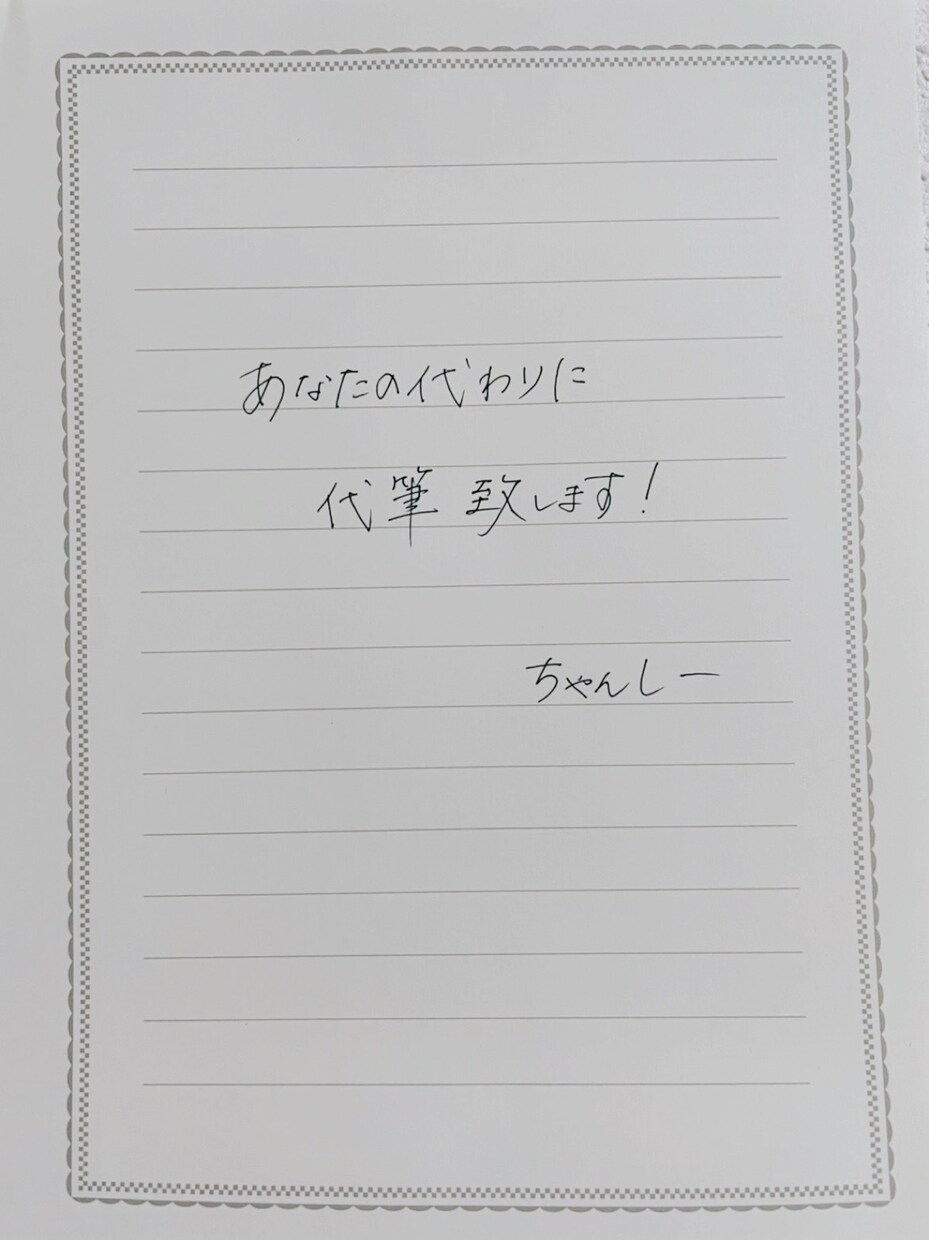 あなたの代わりに
代筆 致します!
ちゃんしー